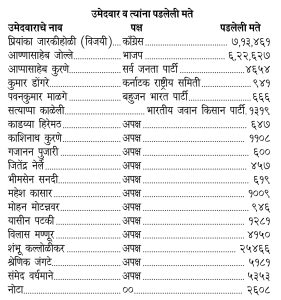 उमेदवार व त्यांना पडलेली मते
उमेदवाराचे नाव पक्ष पडलेली मते
प्रियांका जारकीहोळी (विजयी) ..काँग्रेस ........................ ७,१३,४६१
आण्णासाहेब जोल्ले............ भाजप ........................ ६,२२,६२७
आप्पासाहेब कुरणे............. सर्व जनता पार्टी............... ४६५४
कुमार डोंगरे...................... कर्नाटक राष्ट्रीय समिती ........ ९४१
पवनकुमार माळगे............. बहुजन भारत पार्टी............ ६६६
सत्याप्पा काळेली.............. भारतीय जवान किसान पार्टी. १३१९
काडय्या हिरेमठ............... अपक्ष ........................... ६४७
काशिनाथ कुरणे............... अपक्ष ........................... ११०८
गजानन पुजारी ................. अपक्ष ........................... ६००
जितेंद्र नेर्ले...................... अपक्ष ........................... ४५७
भीमसेन सनदी ................. अपक्ष ........................... ६१९
महेश कासार ................... अपक्ष ........................... १००९
मोहन मोटन्नवर................. अपक्ष ........................... ९४६
यासीन पटकी................... अपक्ष ........................... १२८१
विलास मण्णूर................... अपक्ष ........................... ४१५०
शंभू कल्लोळीकर.............. अपक्ष ........................... २५४६६
श्रेणिक जंगटे................... अपक्ष ........................... ५१८१
संमेद वर्धमाने.................. अपक्ष ........................... ५३५३
नोटा............................. ००.............................. २६०८